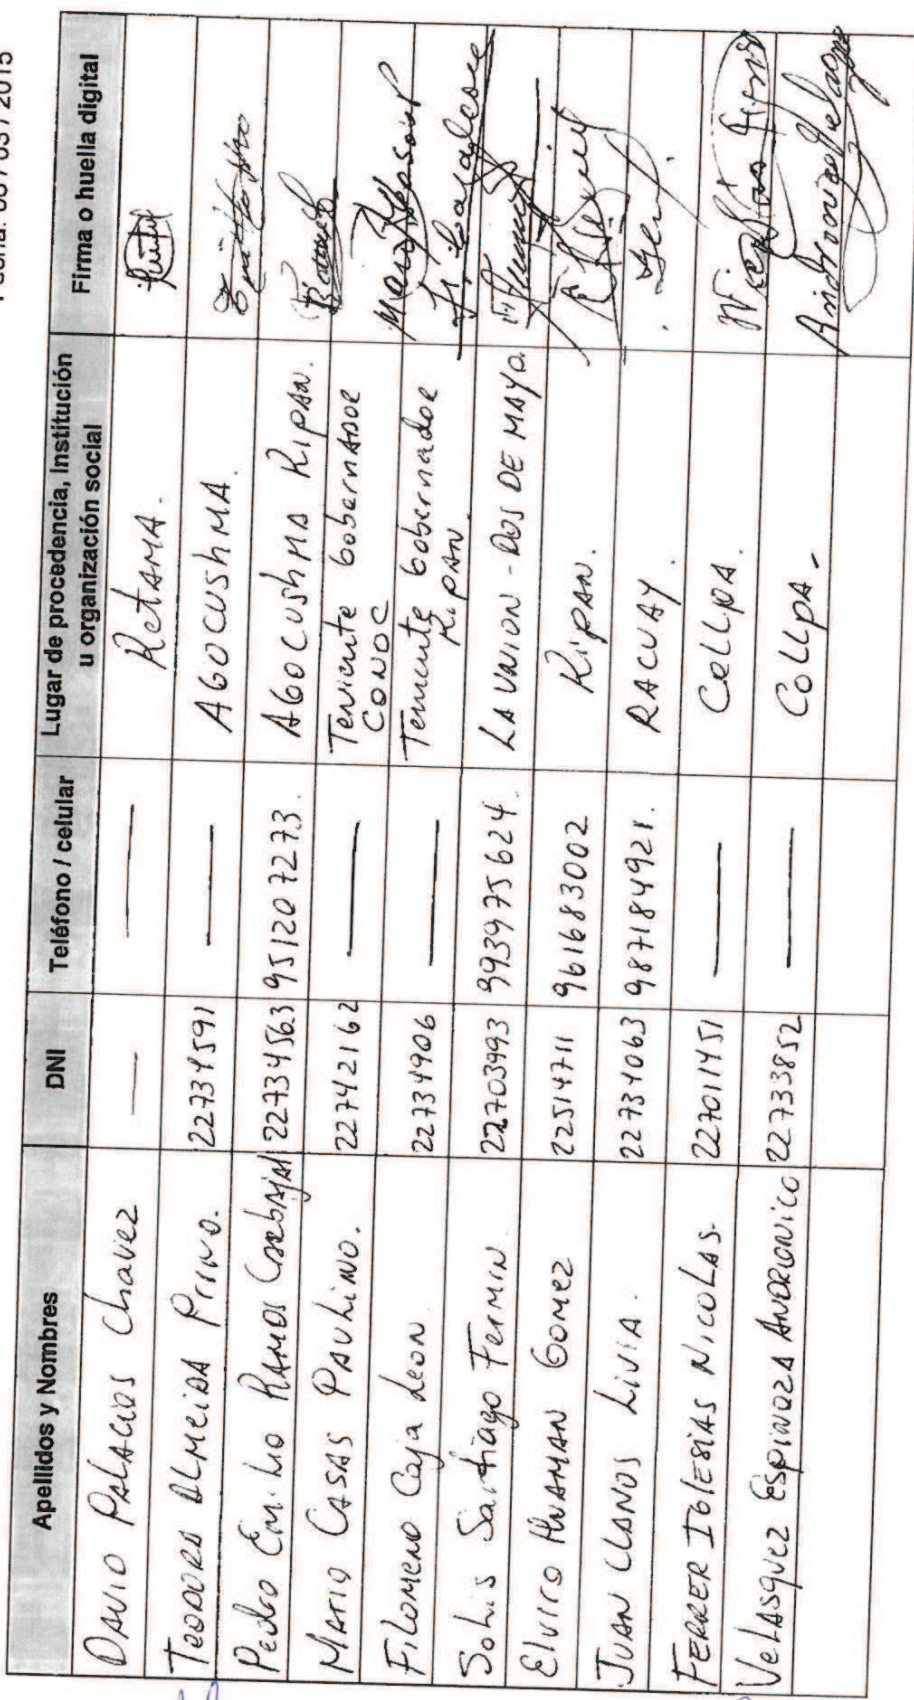 Apellidos y Nombres DNI Teléfono / celular Lugar de procedencia, Institución u organización social Firma o huella digital
DAVID PALACIOS Chavez — — RetAMA.
TEODORO ALMEIDA PRIVO. 22734591 — AGOCUShMA.
Pedro Emilio RAMOS CARbAJAl 22734563 951207273. AGOCUShMA RipAN.
MARIO CASAS PAULINO. 22742162 — Teniente GobernADOR CONOC
FiLOMENO Caja Leon 22734906 — Teniente Gobernador RipAN
SOLis Santiago Fermin 22703993 993975624. LA UNION - DOS DE MAYO.
Elviro HUAMAN Gomez 22514711 961683002 RipAN.
JUAN LLANOS LiviA. 22734063 987184921. RACUAY.
FERRER IGLESIAS NicoLAS. 22701451 — CoLLpA.
VeLASQUEZ ESPINOZA ANDRONICO 22733852 — CoLLpA -